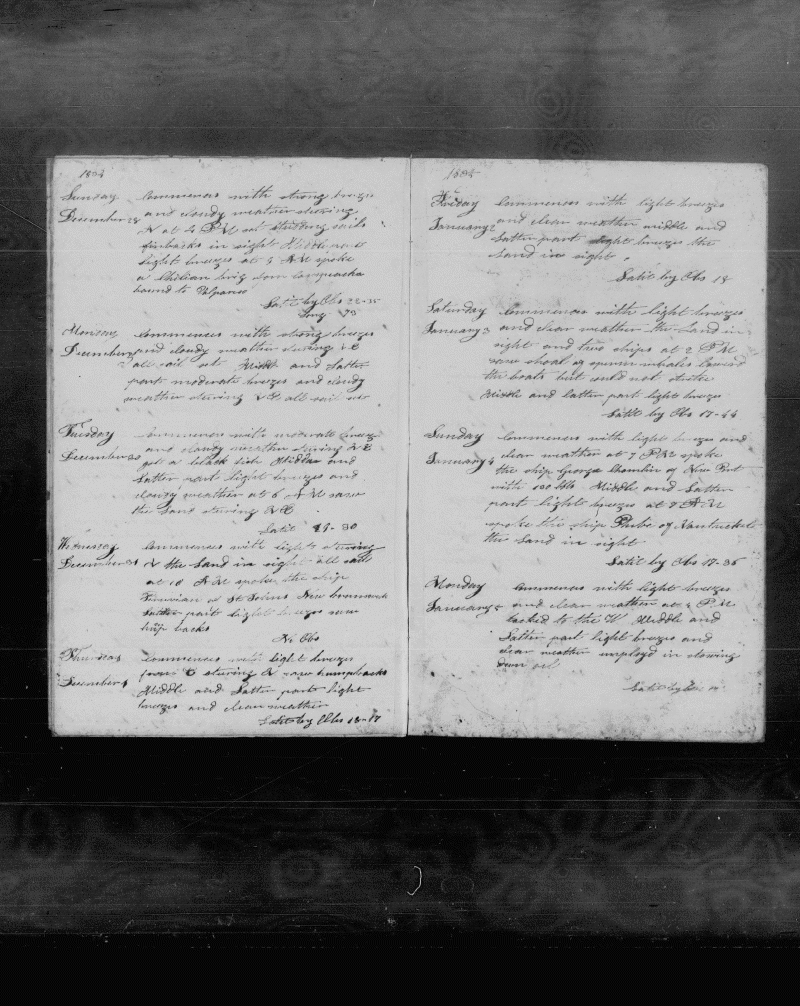 1834
Sunday Commences with strong breezes
December 28 and cloudy weather steering
N at 4 P M set studding sails
finbacks in sight Middle part
light breezes at 9 A M spoke
a Chilian brig from
bound to Valparaso
Latit by Obs 22-35
Long 73
Monday Commences with strong breezes
December and cloudy weather steering N E
all sail set Middle and Latter
part moderate breezes and cloudy
weather steering N E all sail set
Tuesday Commences with moderate breezes
December 30 and cloudy weather steering N E
got a black fish Middle and
Latter part light breezes and
cloudy weather at 6 A M saw
the Land steering N E
Latit 19-30
Wednesday Commences with light steering
December 31 N the Land in sight all sail
at 10 A M spoke the ship
Peruvian of St Johns New brunswick
Latter part light breezes saw
hump backs
No Obs
Thursday Commences with light breezes
December 1 from E steering N saw humpbacks
Middle and Latter part light
breezes and clear weather
Latit by Obs 18-17
1834
Friday Commences with light breezes
January 2 and clear weather middle and
Latter part light breezes the
Land in sight
Latit by Obs 18
Saturday Commences with light breezes
January 3 and clear weather the Land in
sight and two ships at 2 P M
saw shoal of sperm whales lowered
the boats but could not strike
Middle and latter part light breezes
Latit by Obs 17-44
Sunday Commences with light breezes and
January 4 clear weather at 7 P M spoke
the ship George Champlin of New Port
with 100 bbls Middle and Latter
part light breezes at 7 A M
spoke the ship Phebe of Nantucket
the Land in sight
Latit by Obs 17-35
Monday Commences with light breezes
January 5 and clear weather at 4 P M
tacked to the W Middle and
Latter part light breezes and
clear weather employd in stowing
down oil
Latit by Obs